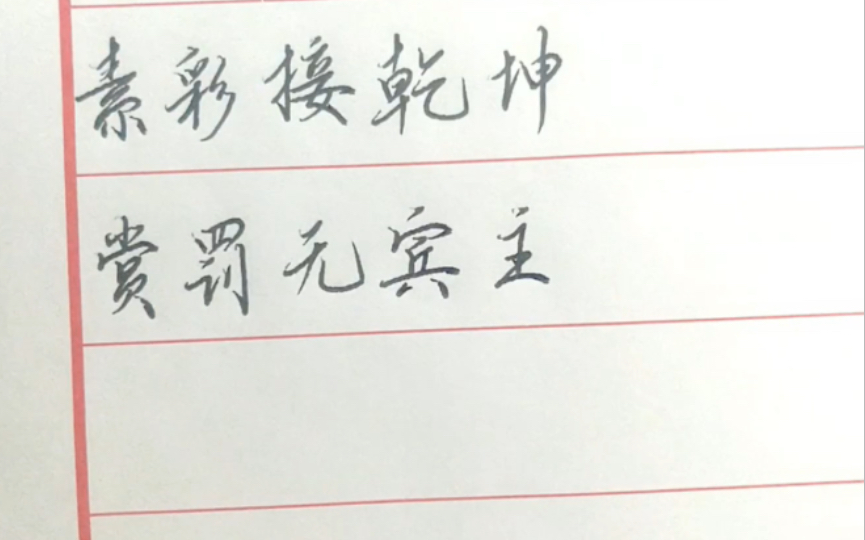 素彩接乾坤
赏罚无宾主